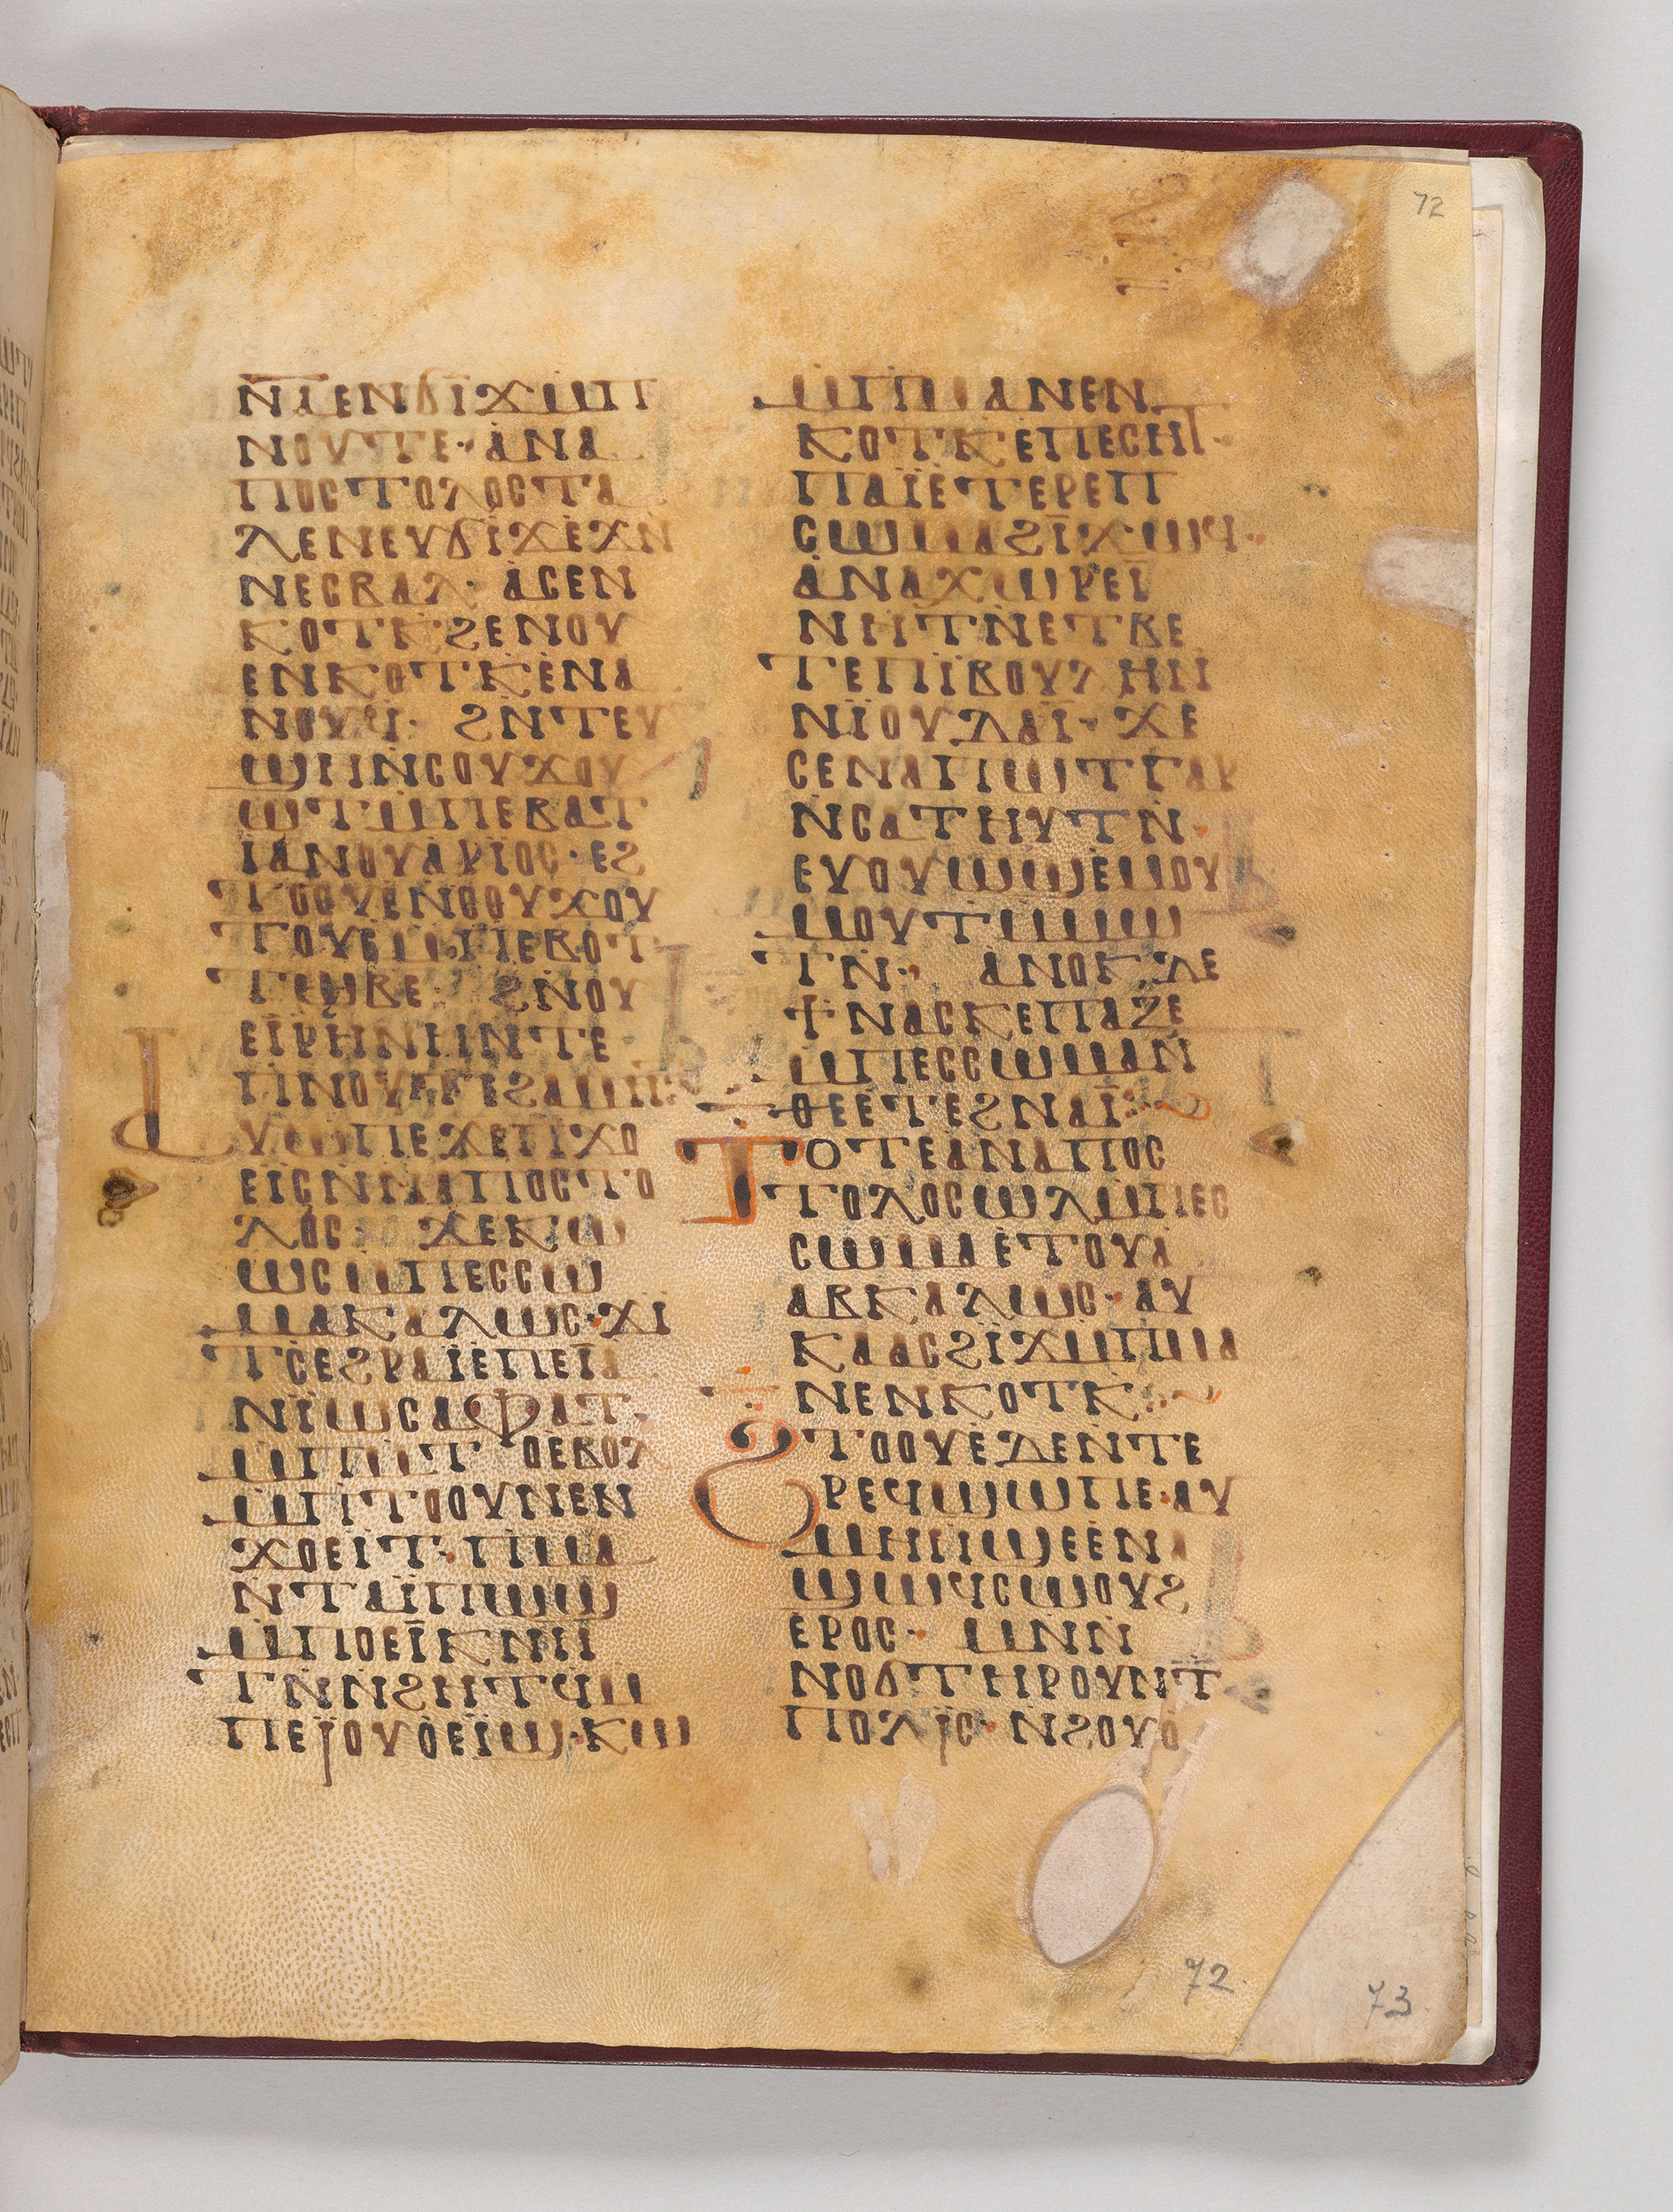 72
ⲚⲦⲈⲚϬⲒϪⲘⲠ
ⲚⲞⲨⲦⲈ· ⲀⲚⲀ
ⲠⲞⲤⲦⲞⲖⲞⲤⲦⲀ
ⲖⲈⲚⲈⲨϬⲒϪⲈϪⲚ
ⲚⲈⲤⲂⲀⲖ· ⲀⲤⲈⲚ
ⲔⲞⲦⲔϨⲈⲚⲞⲨ
ⲈⲚⲔⲞⲦⲔⲈⲚⲀ
ⲚⲞⲨϤ· ϨⲚⲦⲈⲨ
ϢⲎⲚⲤⲞⲨϪⲞⲨ
ⲰⲦⲘⲠⲈⲂⲀⲦ
ⲒⲀⲚⲞⲨⲀⲢⲒⲞⲤ· ⲈϨ
ⲦⲞⲞⲨⲈⲚⲤⲞⲨϪⲞⲨ
ⲦⲞⲨⲈⲘⲠⲈⲂⲞⲦ
ⲦⲰⲂⲈ· ϨⲚⲞⲨ
ⲈⲒⲢⲎⲚⲎⲚⲦⲈ
ⲠⲚⲞⲨⲦⲈϨⲀⲘⲎⲚ
ⲀⲨⲰⲠⲈϪⲈⲠϪⲞ
ⲈⲒⲤⲚⲚⲀⲠⲞⲤⲦⲞ
ⲖⲞⲤ· ϪⲈⲔⲰ
ⲰⲤⲘⲠⲈⲤⲤⲰ
ⲘⲀⲔⲀⲖⲰⲤ· ϪⲒ
ⲦⲤⲈϨⲢⲀⲒⲈⲠⲈⲒⲀ
ⲚⲒⲰⲤⲀⲪⲀⲦ·
ⲘⲠⲘⲦⲞⲈⲂⲞⲖ
ⲘⲠⲦⲞⲞⲨⲚⲈⲚ
ϪⲞⲈⲒⲦ· ⲠⲘⲀ
ⲚⲦⲀⲒⲠⲰϢ
ⲘⲠⲞⲈⲒⲔⲚⲎ
ⲦⲚⲚϨⲎⲦϤⲘ
ⲠⲈⲒⲞⲨⲞⲈⲒϢ· ⲔⲰ
ⲘⲠⲘⲀⲚⲈⲚ
ⲔⲞⲦⲔⲈⲠⲈⲤⲎⲦ·
ⲠⲀⲒⲈⲦⲈⲢⲈⲠ
ⲤⲰⲘⲀϨⲒϪⲰϤ·
ⲀⲚⲀⲬⲰⲢⲈⲒ
ⲚⲎⲦⲚⲈⲦⲂⲈ
ⲦⲈⲠⲒⲂⲞⲨⲖⲎⲚ
ⲚⲒⲞⲨⲆⲀⲒ· ϪⲈ
ⲤⲈⲚⲀⲠⲰⲦⲄⲀⲢ
ⲚⲤⲀⲦⲎⲨⲦⲚ·
ⲈⲨⲞⲨⲰϢⲈⲘⲞⲨ
ⲘⲞⲨⲦⲘⲘⲰ
ⲦⲚ· ⲀⲚⲞⲔⲆⲈ
ϮⲚⲀⲤⲔⲈⲠⲀⲌⲈ
ⲘⲠⲈⲤⲤⲰⲘⲀⲚ
ⲐⲈⲈⲦⲈϨⲚⲀⲒ
ⲦⲞⲦⲈⲀⲚⲀⲠⲞⲤ
ⲦⲞⲖⲞⲤⲰⲖⲘⲠⲈⲤ
ⲤⲰⲘⲀⲈⲦⲞⲨⲀ
ⲀⲂⲔⲀⲖⲰⲤ· ⲀⲨ
ⲔⲀⲀⲤϨⲒϪⲘⲠⲘⲀ
ⲚⲈⲚⲔⲞⲦⲔ·
ϨⲦⲞⲞⲨⲈⲆⲈⲚⲦⲈ
ⲢⲈϤϢⲰⲠⲈ· ⲀⲨ
ⲘⲎⲎϢⲈⲈⲚⲀ
ϢⲰϤⲤⲰⲞⲨϨ
ⲈⲢⲞⲤ· ⲘⲚⲚ
ⲚⲞϬⲦⲎⲢⲞⲨⲚⲦ
ⲠⲞⲖⲒⲤ· ⲚϨⲞⲨⲞ
72
73